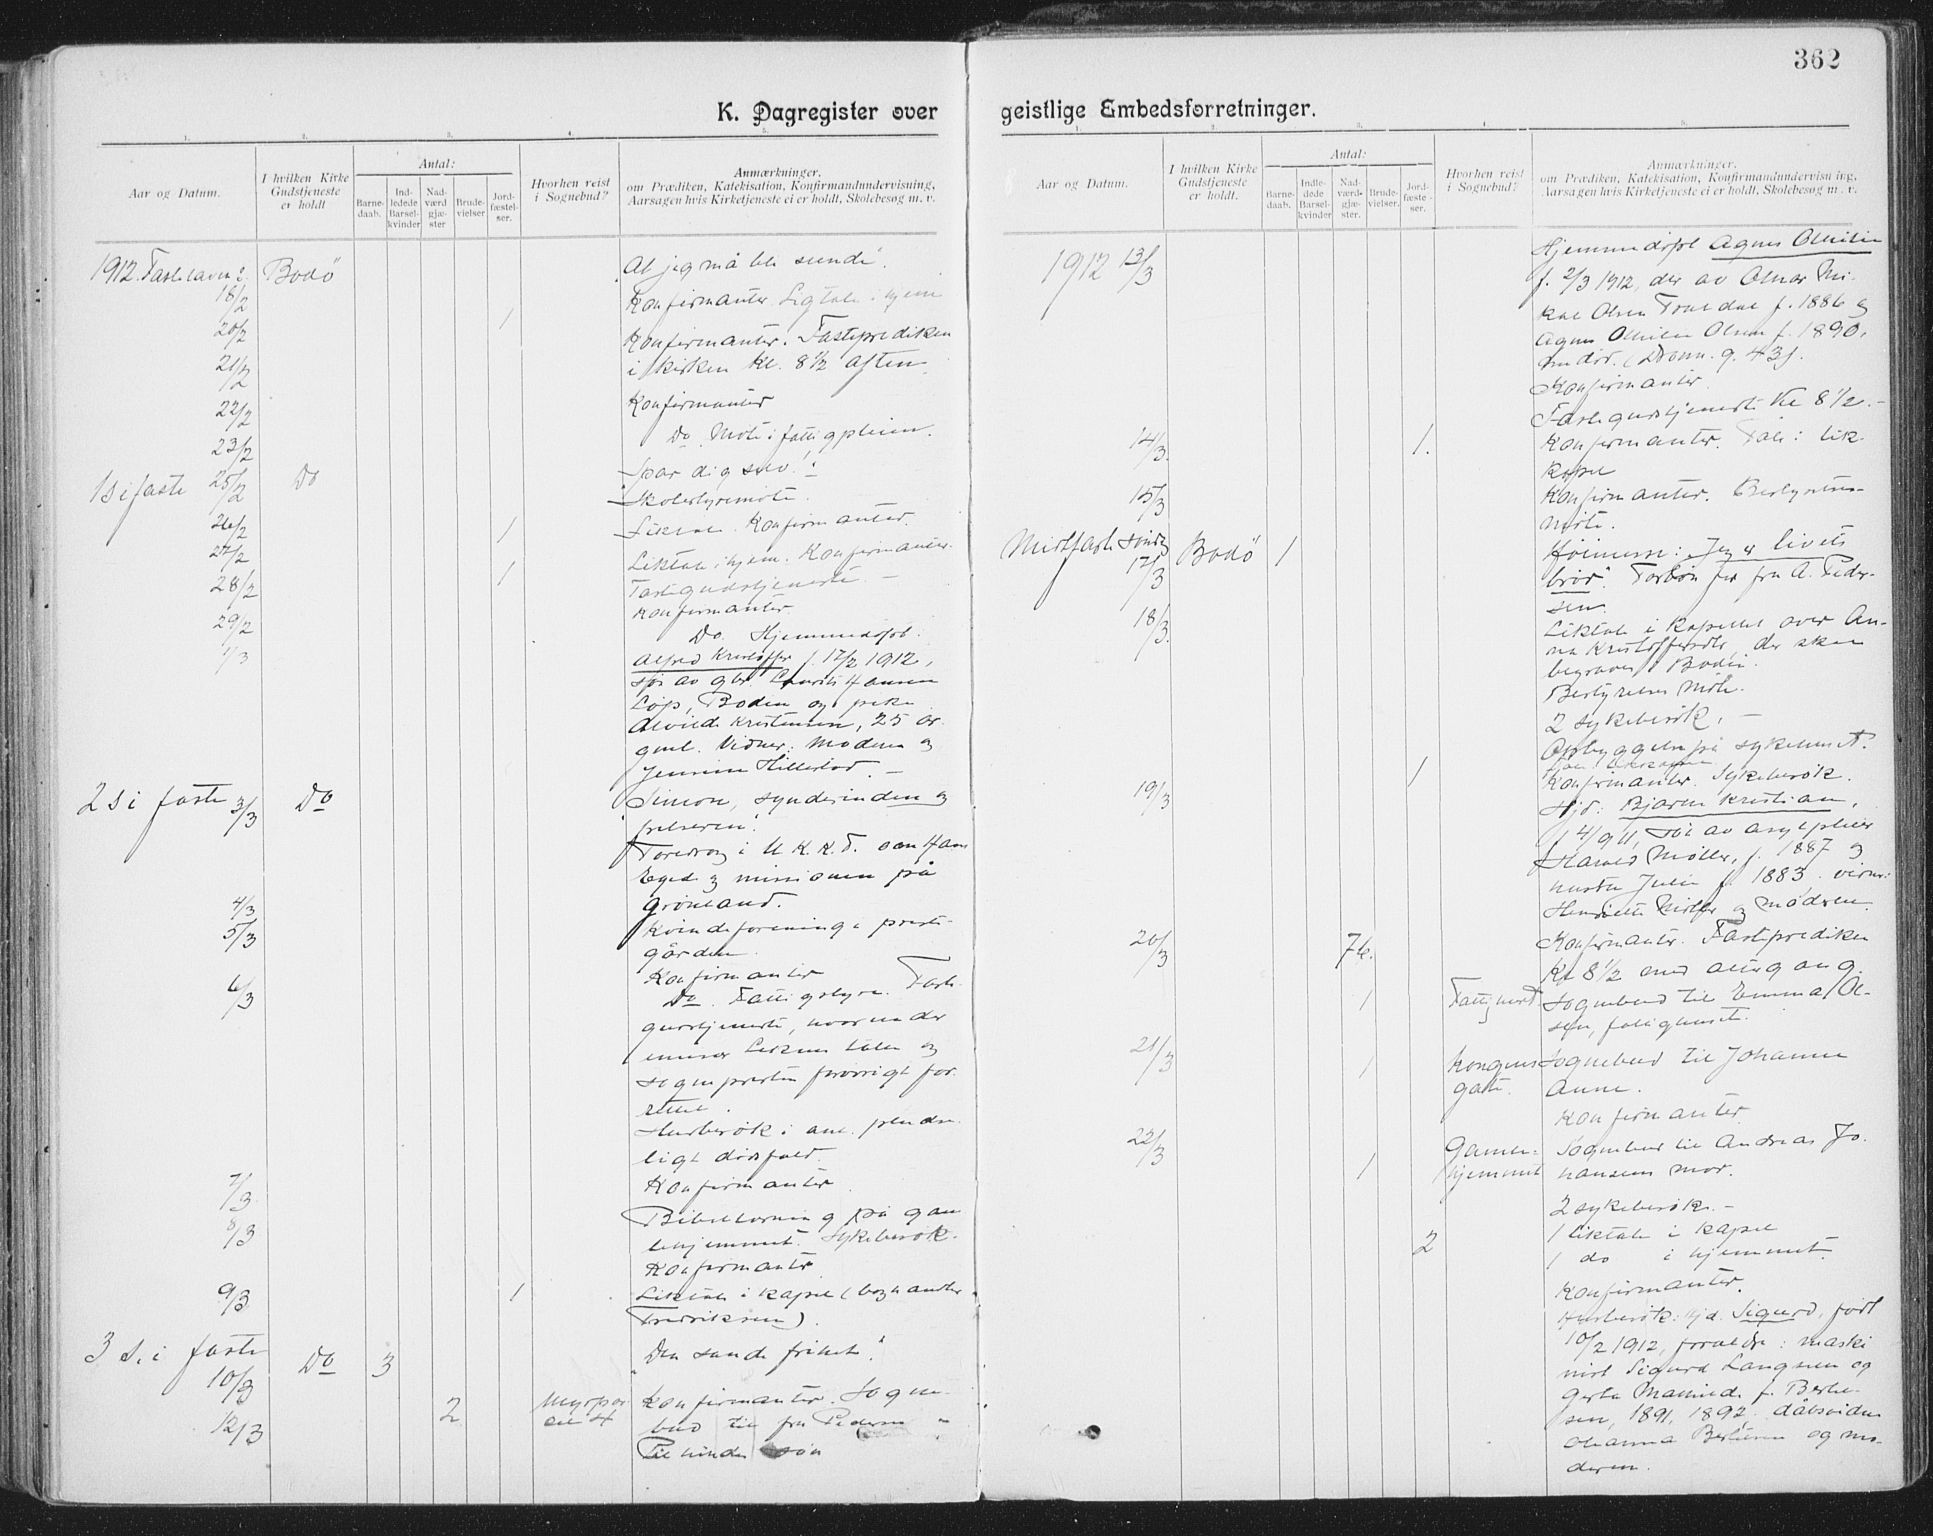 362
K. Dagregister over
geistlige Embedsforretninger.
1. 2. 3. 4. 5.
Aar og Datum.
I hvilken Kirke Gudstjeneste er holdt
Antal:
Barne-daab.
Ind-ledede Barsel-kvinder
Nad-værd gjæ-ster
Brude-vielser
Jord-fæstel-ser.
Hvorhen reist i Sognebud?
Anmærkninger,
om Prædiken, Katekisation, Konfirmandundervisning,
Aarsagen hvis Kirketjeneste ei er holdt, Skolebesøg m. v.
1912. Fastelavn s. Bodö
At jeg må bli seende.
18/2
Konfirmanter. Ligtale i hjem
20/2 1
Konfirmanter. Fasteprediken
i kirken kl. 8 1/2 aften.
21/2
Konfirmanter
22/2
Do. Møte i fattigpleien.
23/2
1 s i faste 25/2 Do
Spar dig selv!
Skolestyremöte.
26/2 1
Liktale. Konfirmanter.
27/2
Liktale i hjem. Konfirmanter.
28/2 1
Fastegudstjeneste. —
Konfirmanter.
29/2
Do. Hjemmedøpt.
1/3
Alfred Kristoffer f. 17/2 1912,
søn av gbr. Laurits Hansen
Løp, Bodin og pike
Alvilde Kristensen, 25 år
gml. Vidner: Modren og
Jensine Hillestad. —
2 s i faste 3/3 Do
Simon, synderinden og
frelseren.
Foredrag i U.K.K.F. om Hans
Egede og missionen på
Grønland.
4/3
Kvindeforening i preste-
5/3
gården.
Konfirmanter
6/3
Do. Fattigstyre. Faste-
gudstjeneste, hvorunder
talte og
sognepresten forøvrigt for-
rettet.
Husbesøk i anl. pludse-
ligt dødsfald.
7/3
Konfirmanter.
Bibellæsning på gam
8/3
lehjemmet. Sykebesøk.
Konfirmanter
9/3 1
Liktale i kapel (
Fredriksen).
3 s. i faste 10/3 Do 3
Den sande frihet".
12/3 2
Konfirmanter. Sogne-
bud til fru Pedersen
til hendes søn
1. 2. 3. 4. 5.
Aar og Datum.
I hvilken Kirke Gudstjeneste er holdt.
Antal:
Barne-daab.
Indle-dede Barsel-kvinder
Nad-værd-gjæ-ster.
Brude-vielser.
Jord-fæste-ser.
Hvorhen reist i Sognebud?
Anmærkninger.
om Prædiken, Katekisation, Konfirmandundervisning,
Aarsagen hvis Kirketjeneste ei er holdt. Skolebesøg m. v.
1912 13/3
Hjemmedøpt Agnes Otilie
f. 2/3 1912, dtr av Olnar Mi-
kal Olsen f. 1886 og
Agnes Otilie Olsen f. 1890.
g. 43).
Konfirmanter.
Fastegudstjeneste kl 8 1/2. —
14/3 1.
Konfirmanter. Tale i lik
kapel
15/3
Konfirmanter. Bestyrelses-
møte.
Midtfaste søndag 17/3 Bodö 1
Høimesse: Jeg er livets
brød". Forbøn for fru A. Peder-
sen.
18/3.
Liktale i kapellet over An-
na Kristoffersdtr, der skal
begraves i Bodin.
Bestyrelses møte.
2 sykebesøk. —
Opbyggelse på sykehuset.
19/3 1
Konfirmanter. Sykebesøk.
Hjd: Bjarne Kristian,
f 4/9 11, søn av asylpleier
Harald Møller, f. 1887 og
hustru Julie f. 1883. vidner:
Henriette Møller og modren.
20/3 76.
Konfirmanter. Fasteprediken
Kl 8 1/2 med altergang.
1
Sognebud til Emma Ol-
sen, fattighuset.
21/3 1 Kongens gate
Sognebud til Johanna
Anne.
Konfirmanter
22/3 1 Gamle-hjemmet
Sognebud til Andreas Jo-
hansens mor.
2 sykebesøk. —
1 liktale i kapel
2
1 do i hjemmet.
Konfirmanter.
Husbesøk: hjd. Sigurd, født
10/2 1912, forældre: maski
nist Sigurd Langseen og
Gerta Mathilde f. Berte-
sen, 1891, 1892, dåbsvidner
Johanna Bertesen og mo-
deren.